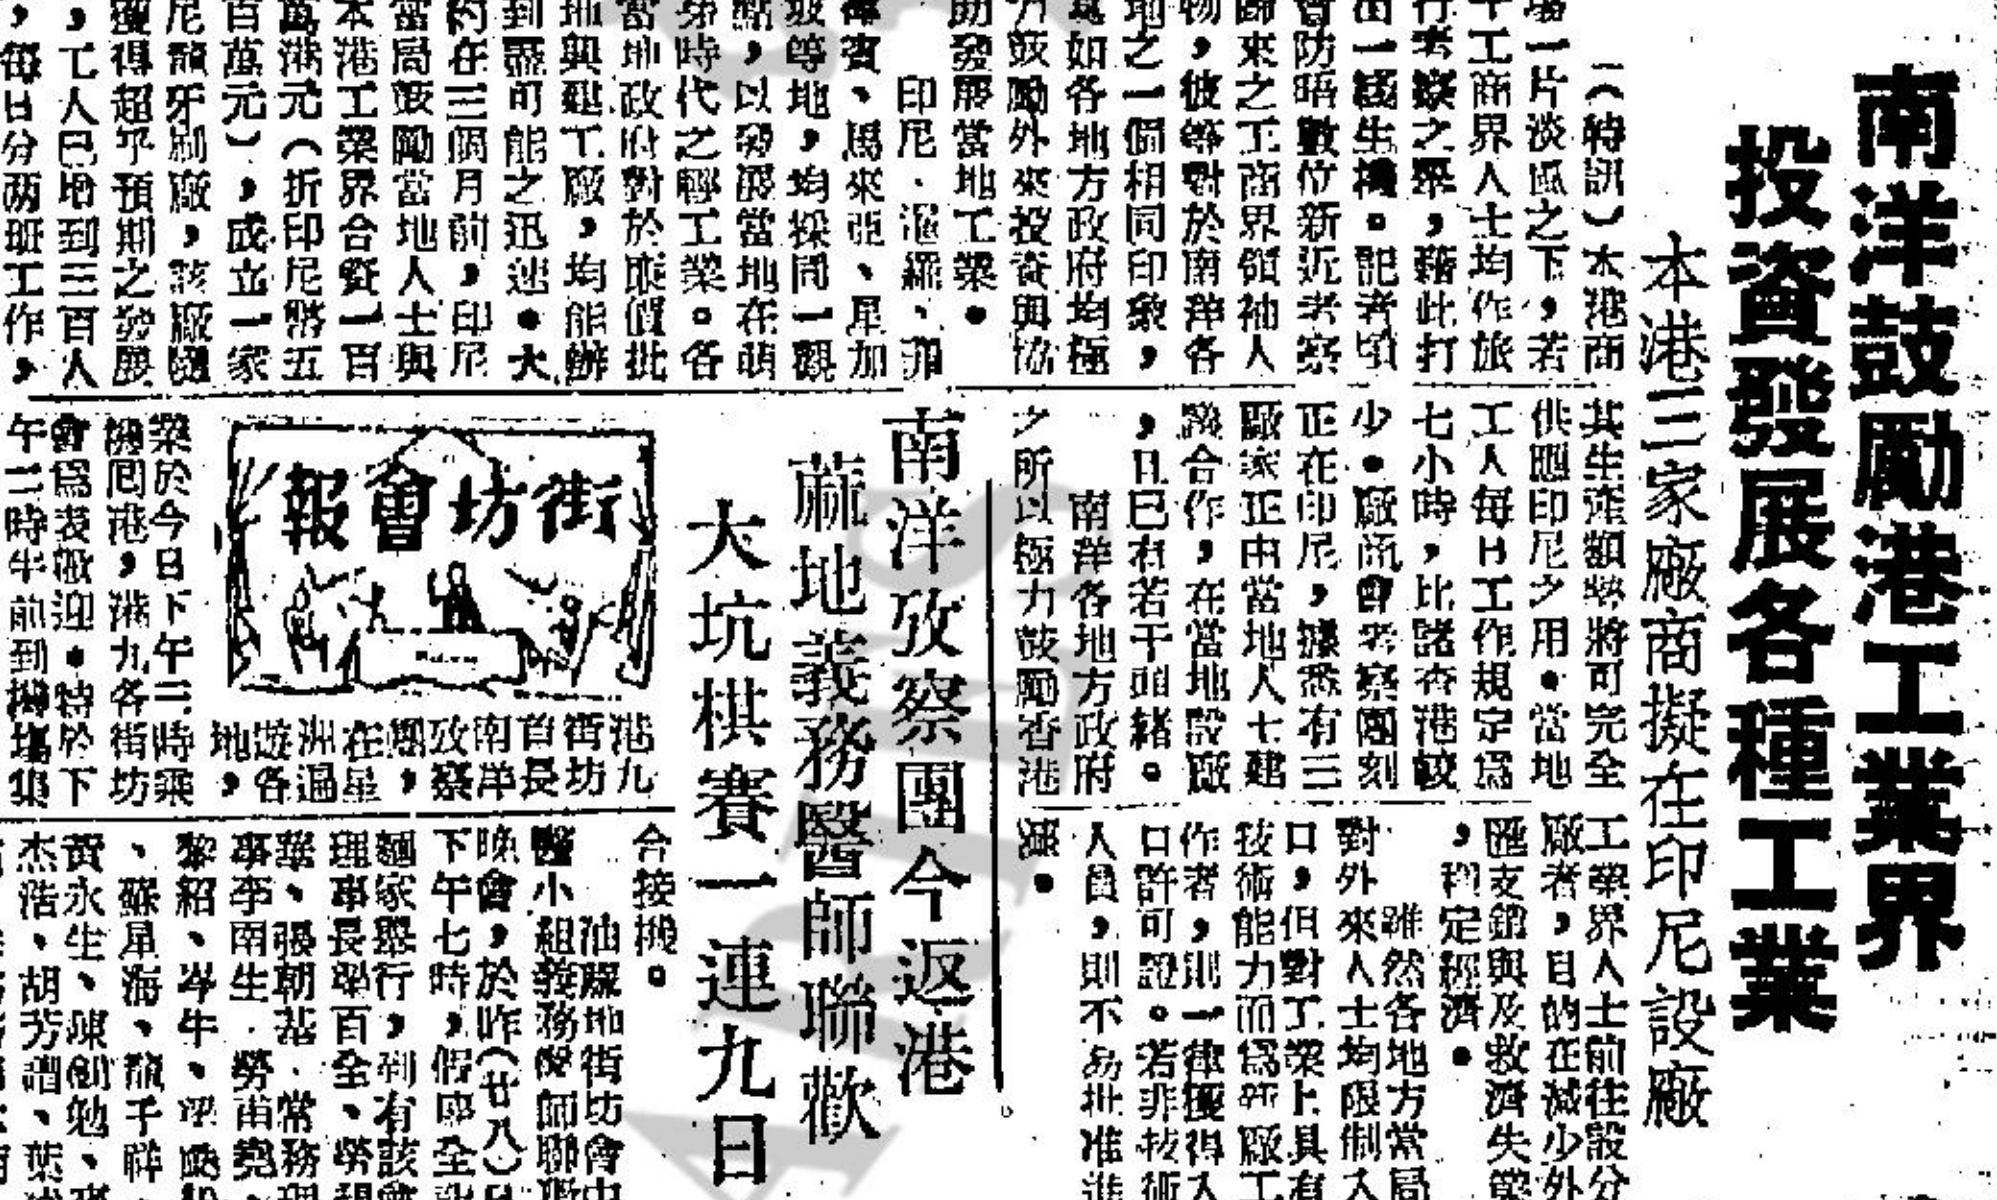 南洋鼓勵港工業界
投資發展各種工業
本港三家廠商擬在印尼設廠
（轉訊）本港商
場一片淡風之下，若
干工商界人士均作旅
行考察之舉，藉此打
出一綫生機。記者頃
會防晤數位新近考察
歸來之工商界領袖人
物，彼等對於南洋各
地之一個相同印象，
為如各地方政府均極
力鼓勵外來投資與協
助發展當地工業。
印尼、暹羅、菲
律賓、馬來亞、星加
坡等地，均採同一觀
點，以發展當地在萌
芽時代之輕工業。各
當地政府對於取價批
地與建工廠，均能辦
到盡可能之迅速。大
約在三個月前，印尼
當局鼓勵當地人士與
本港工業界合資一百
萬港元（折印尼幣五
百萬元），成立一家
尼龍牙刷廠，該廠隨
獲得超乎預期之發展
，工人已增到三百人
，每日分兩班工作，
其生產額將可完全
供應印尼之用。當地
工人每日工作規定為
七小時，比諸香港較
少。廠商會考察團刻
正在印尼，據悉有三
廠家正由當地人士建
議合作，在當地設廠
，且已有若干頭緒。
南洋各地方政府
之所以極力鼓勵香港
工業界人士前往設分
廠者，目的在減少外
匯支銷與及救濟失業
，穩定經濟。
雖然各地方當局
對外來人士均限制入
口，但對工業上具有
技術能力而為新廠工
作者，則一律獲得入
口許可證。若非技術
人員，則不易批准進
南洋攷察團今返港
蔴地義務醫師聯歡
大坑棋賽一連九日
街坊會報
港九
街坊
首長
南洋
攷察
團，
在星
洲過
遊各
地，
業於今日下午三時乘
機囘港，港九各街坊
會為表歡迎。特於下
午二時半前到機場集
合接機。
油蔴地街坊會中
醫小組義務醫師聯
晚會，於昨（廿八）日
下午七時，假座全
麵家舉行，到有該會
理事長畢百全、勞
華、張朝基、常務理
事李南生、勞甫堯、
黎紹、岑牛、
、蘇星海、龍子祥、
黃永生、陳劍勉、
杰浩、胡芳譜、葉